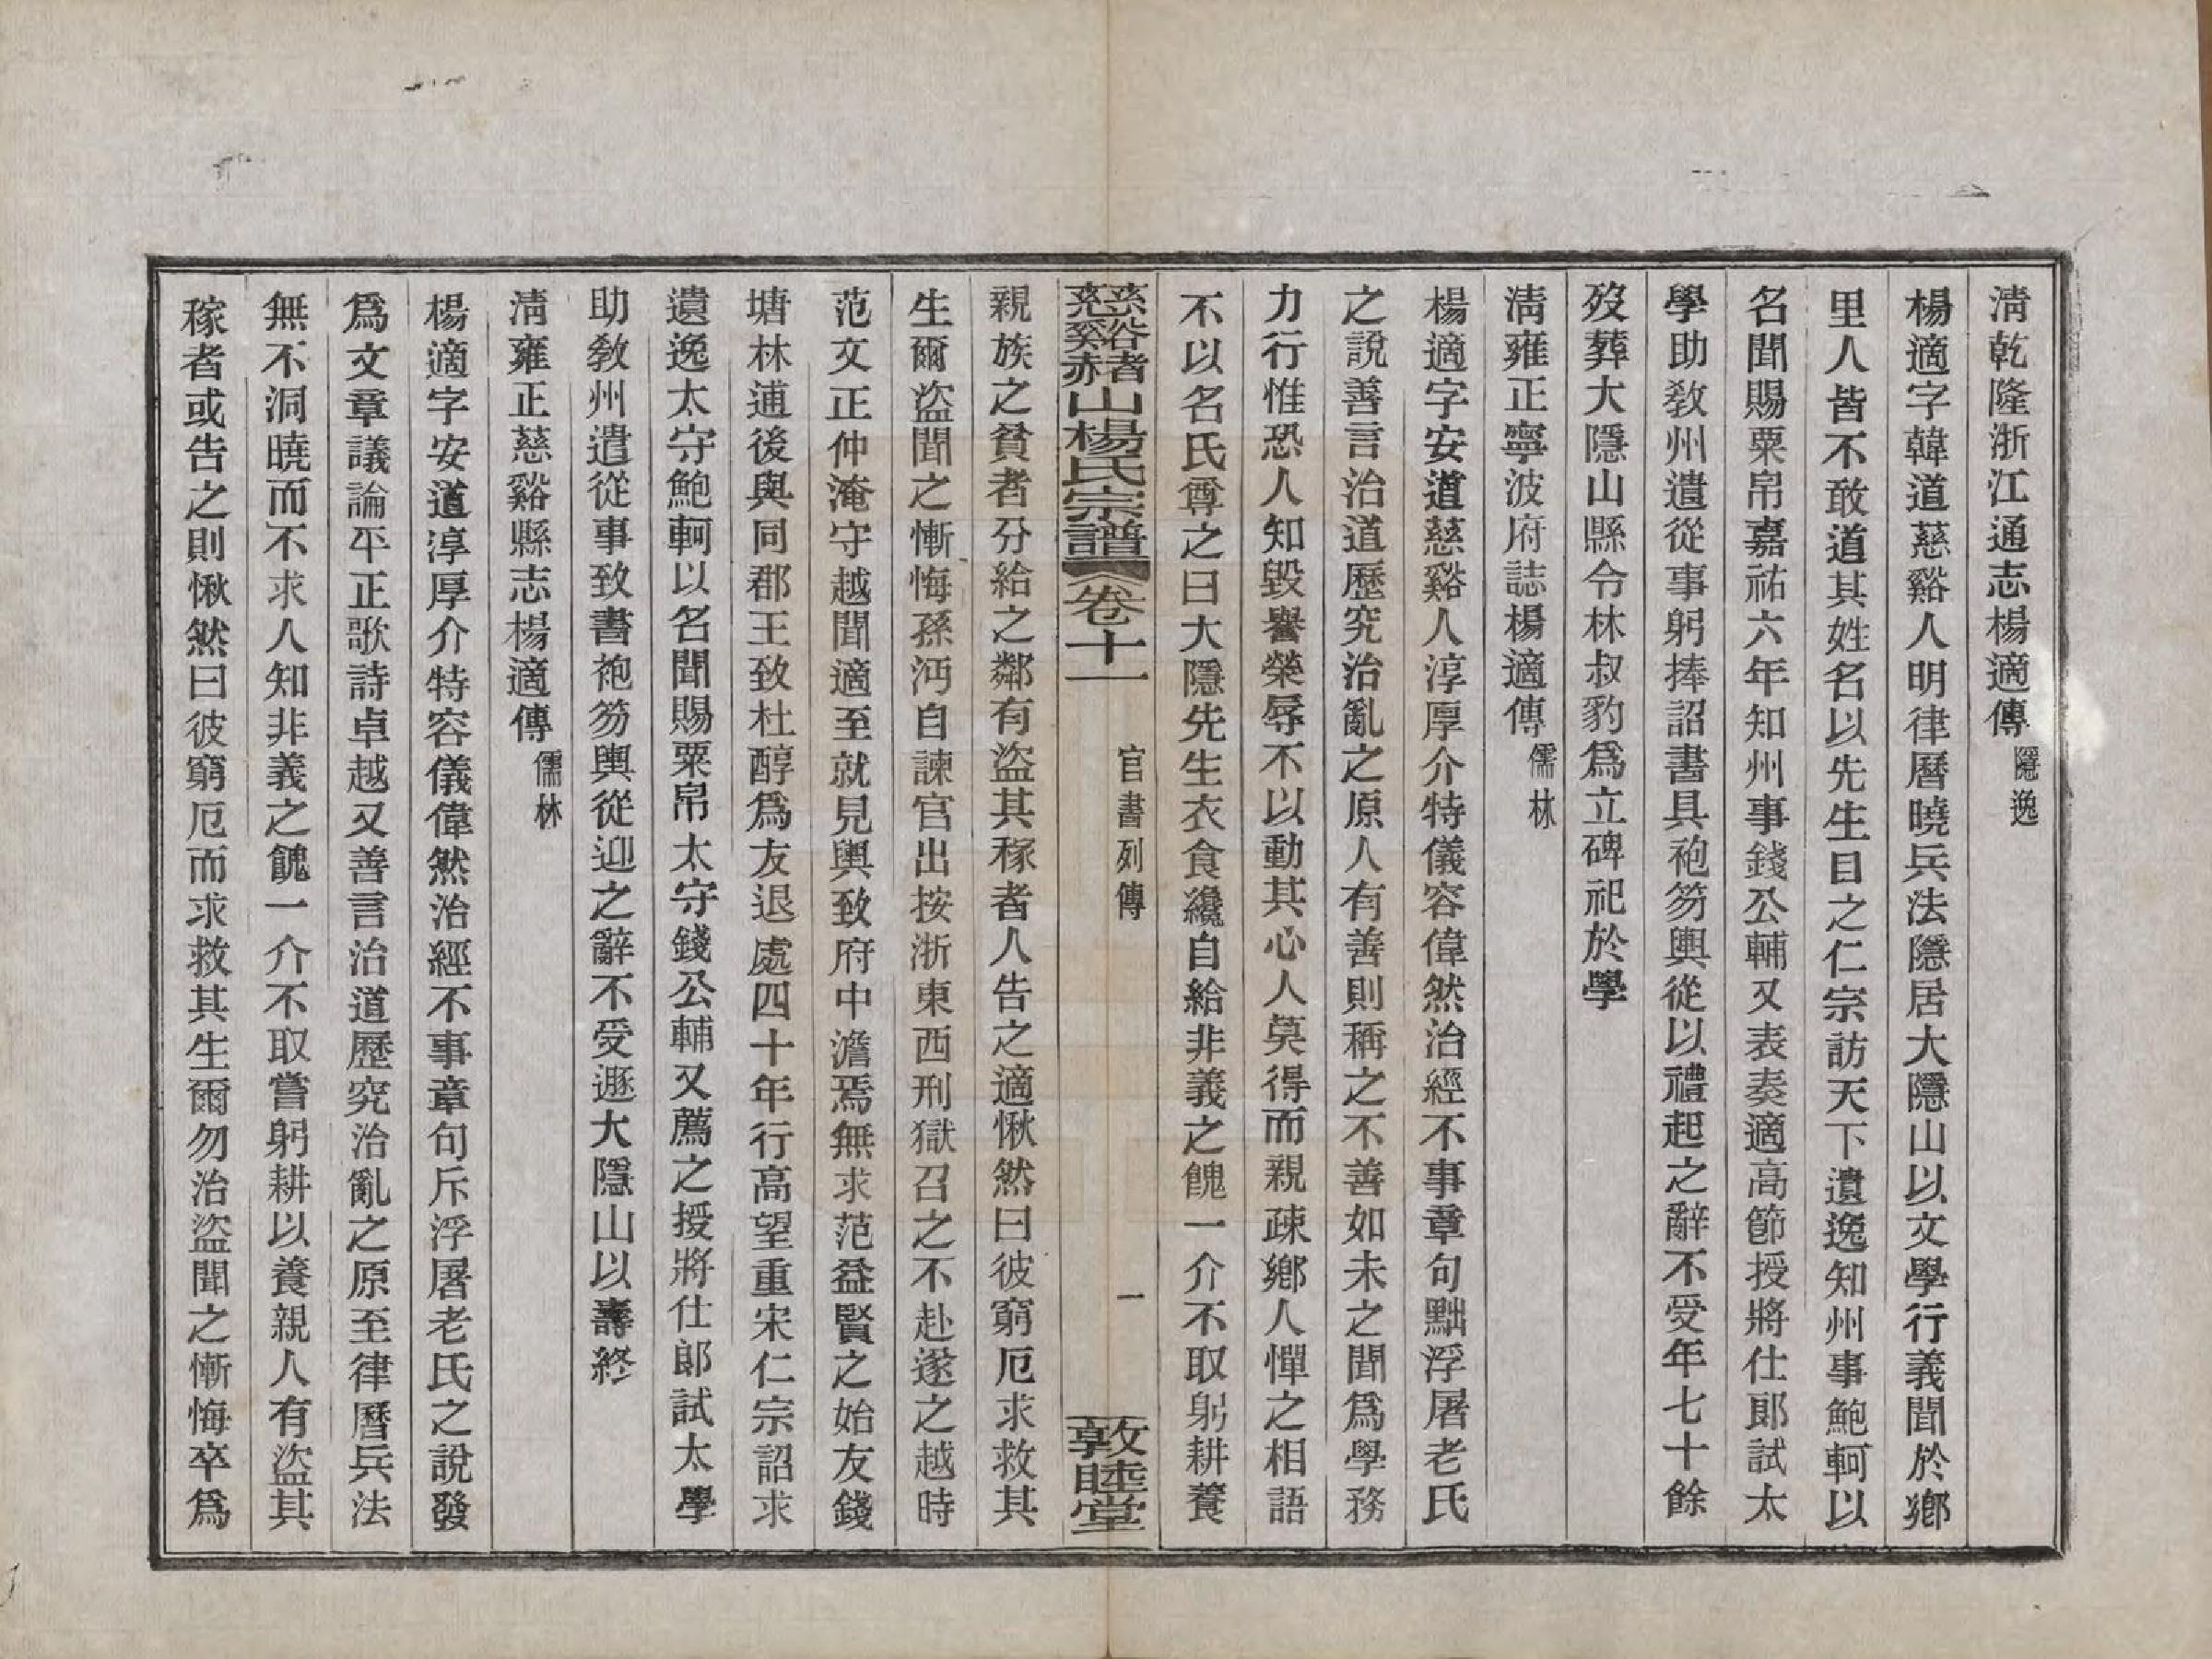 淸乾隆浙江通志楊適傳隱逸
楊適字韓道慈谿人明律曆曉兵法隱居大隱山以文學行義聞於鄕
里人皆不敢道其姓名以先生目之仁宗訪天下遺逸知州事鮑軻以
名聞賜粟帛嘉祐六年知州事錢公輔又表奏適高節授將仕郞試太
學助敎州遣從事躬捧詔書具袍笏輿從以禮起之辭不受年七十餘
歿葬大隱山縣令林叔豹爲立碑祀於學
淸雍正寧波府誌楊適傳儒林
楊適字安道慈谿人淳厚介特儀容偉然治經不事章句黜浮屠老氏
之說善言治道歷究治亂之原人有善則稱之不善如未之聞爲學務
力行惟恐人知毀譽榮辱不以動其心人莫得而親疎鄕人憚之相語
不以名氏尊之曰大隱先生衣食纔自給非義之餽一介不取躬耕養
慈谿赭山楊氏宗譜 卷十一 官書列傳 一 敦睦堂
親族之貧者分給之鄰有盜其稼者人告之適愀然曰彼窮厄求救其
生爾盜聞之慚悔孫沔自諫官出按浙東西刑獄召之不赴遂之越時
范文正仲淹守越聞適至就見輿致府中澹焉無求范益賢之始友錢
塘林逋後與同郡王致杜醇爲友退處四十年行高望重宋仁宗詔求
遺逸太守鮑軻以名聞賜粟帛太守錢公輔又薦之授將仕郞試太學
助敎州遣從事致書袍笏輿從迎之辭不受遯大隱山以壽終
淸雍正慈谿縣志楊適傳儒林
楊適字安道淳厚介特容儀偉然治經不事章句斥浮屠老氏之說發
爲文章議論平正歌詩卓越又善言治道歷究治亂之原至律曆兵法
無不洞曉而不求人知非義之餽一介不取嘗躬耕以養親人有盜其
稼者或告之則愀然曰彼窮厄而求救其生爾勿治盜聞之慚悔卒爲